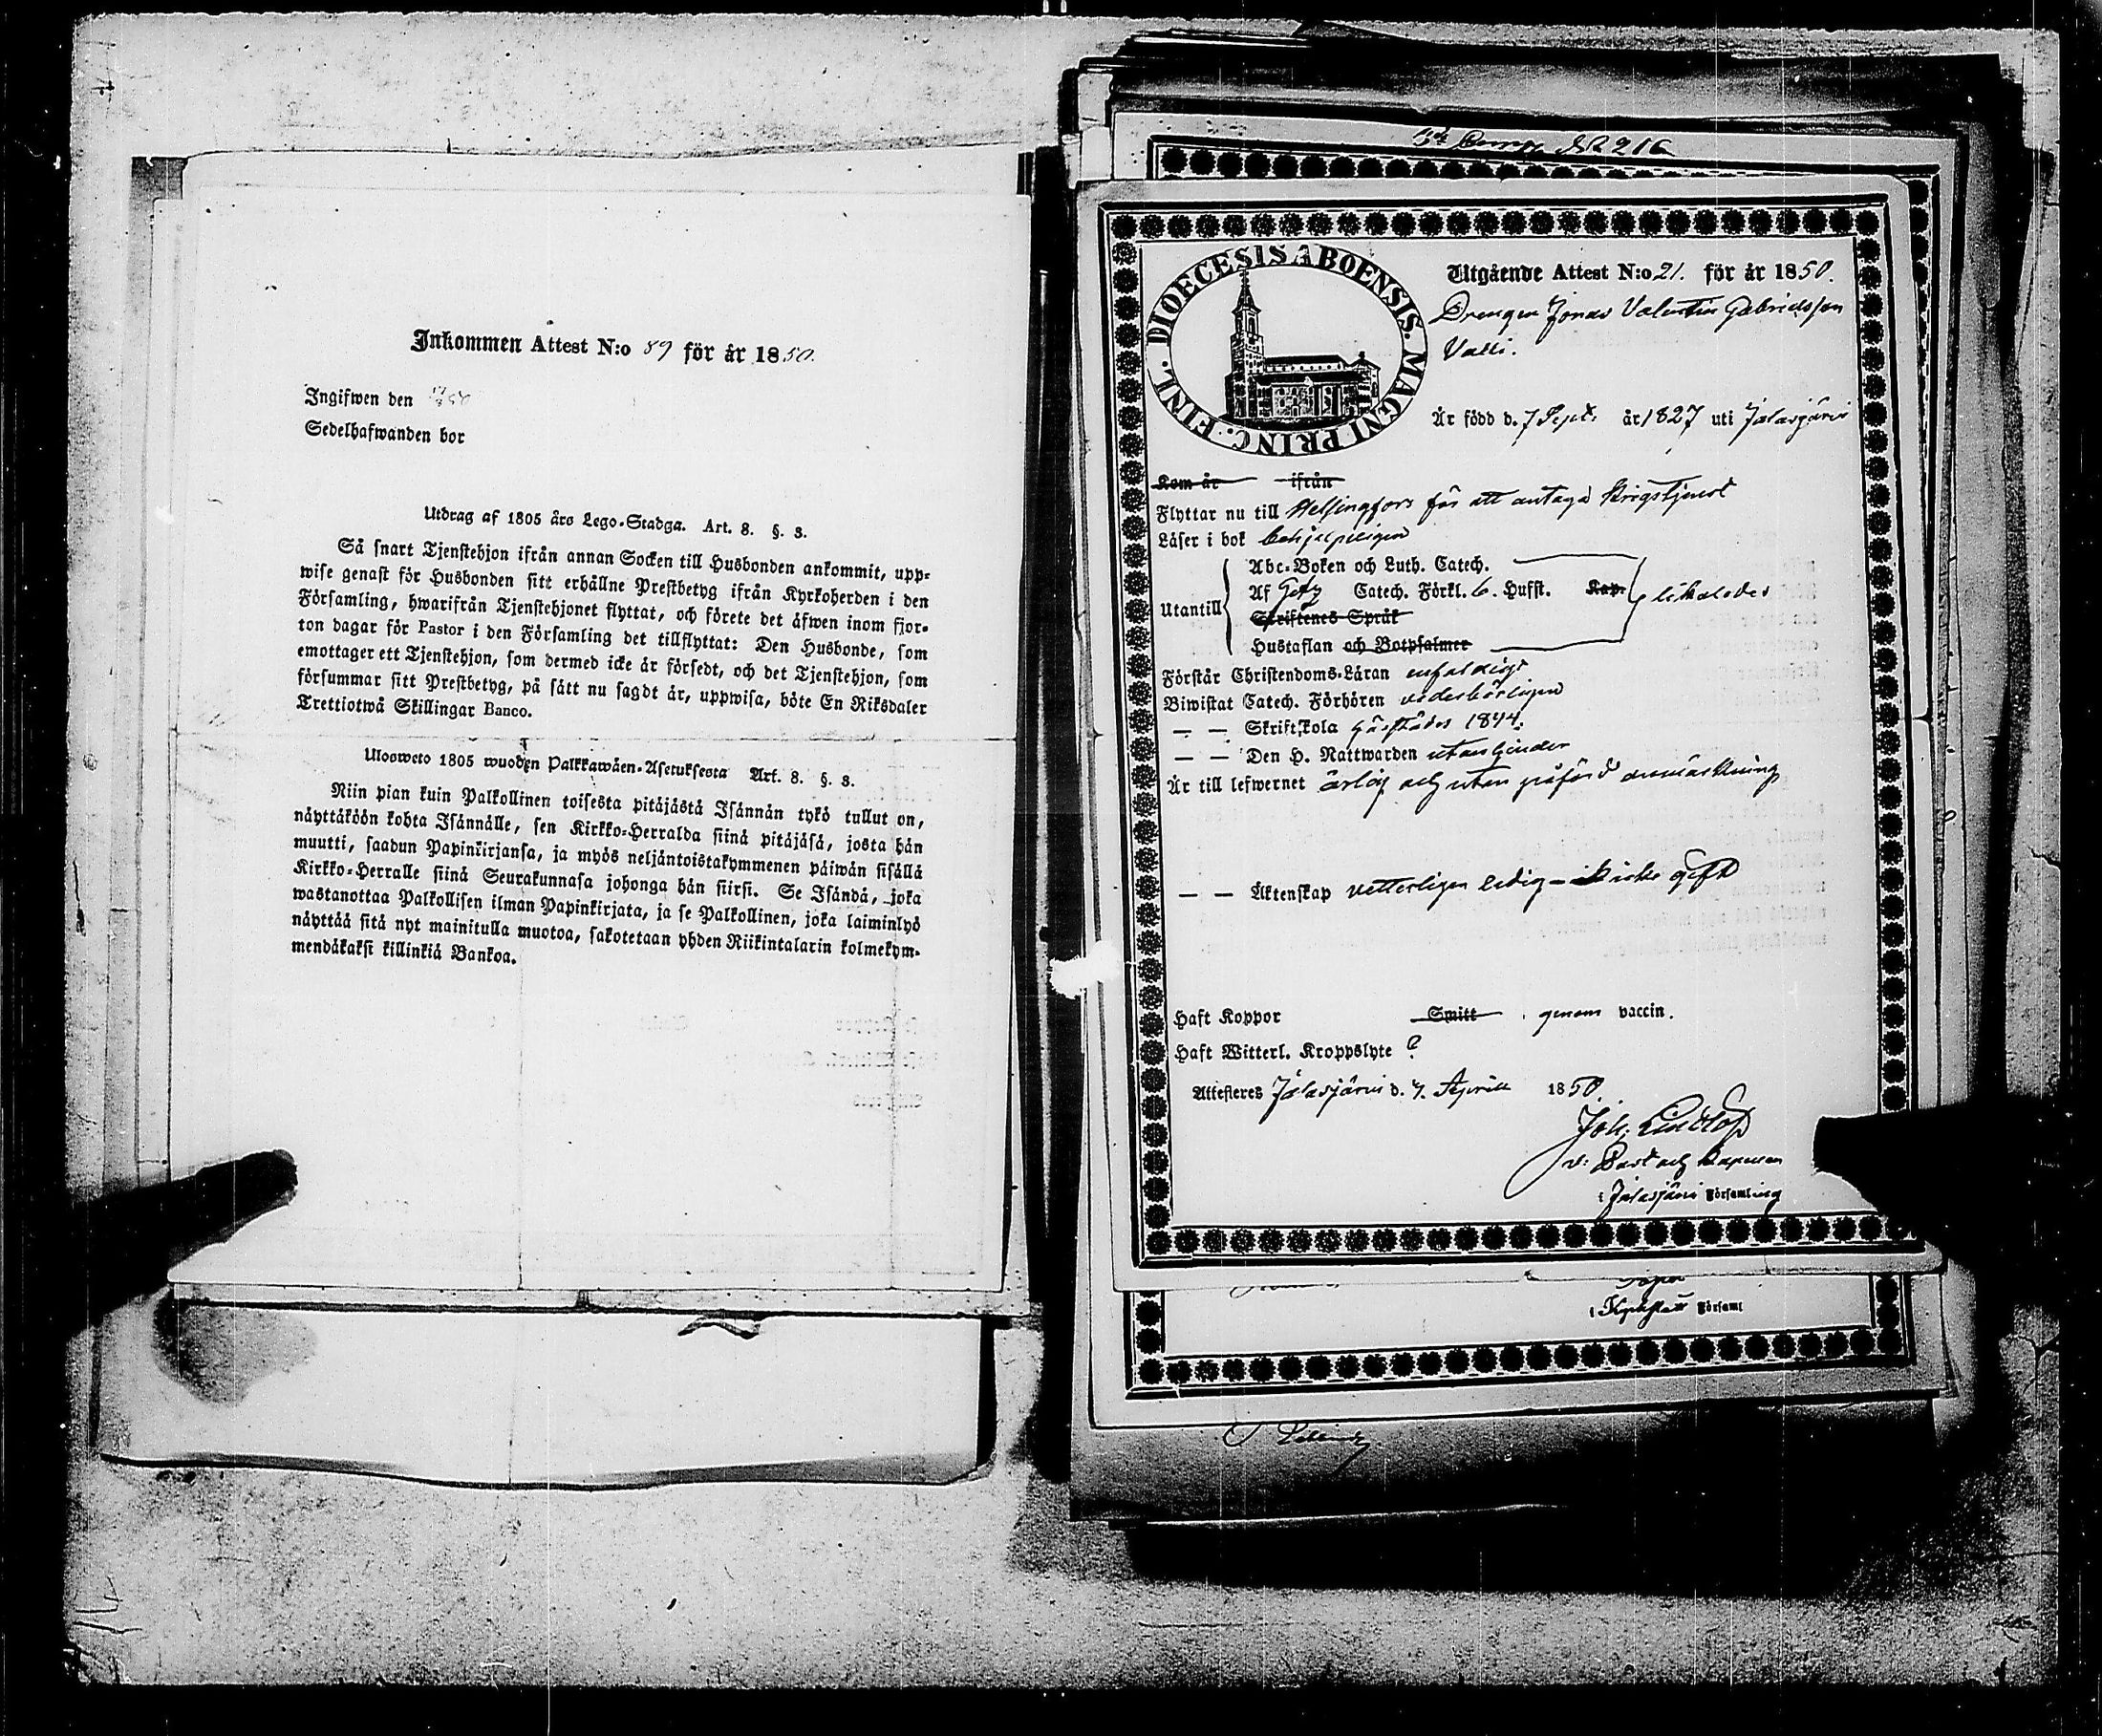 Inkommen Attest N:o 89 för år 1850.
Ingifwen den
Sedelhafwanden bor
Utdrag af 1805 års Lego-Stadga. Art. 8. §. 3.
Så snart Tjenstehjon ifrån annan Socken till Husbonden ankommit, upp-
wise genast för Husbonden sitt erhållne Prestbetyg ifrån Kyrkoherden i den
Församling, hwarifrån Tjenstehjonet flyttat, och förete det äfwen inom fjor-
ton dagar för Pastor i den Församling det tillflyttat: Den Husbonde, som
emottager ett Tjenstehjon, som dermed icke är försedt, och det Tjenstehjon, som
försummar sitt Prestbetyg, på sätt nu sagdt är, uppwisa, böte En Riksdaler
Trettiotwå Skillingar Banco.
Ulosweto 1805 wuoden Palkkawäen-Asetuksesta Art. 8. §. 3.
Niin pian kuin Palkollinen toisesta pitäjästä Isännän tykö tullut on,
näyttäköön kohta Isännälle, sen Kirkko-Herralda siinä pitäjäsä, josta hän
muutti, saadun Papinkirjansa, ja myös neljäntoistakymmenen päiwän sisällä
Kirkko-Herralle siinä Seurakunnasa johonga hän siirsi. Se Isändä, joka
wastanottaa Palkollisen ilman Papinkirjata, ja se Palkollinen, joka laiminlyö
näyttää sitä nyt mainitulla muotoa, sakotetaan yhden Riikintalarin kolmekym-
mendäkaksi killinkiä Bankoa.
N 216
DIOECESIS ABOENSIS. MAGNI PRINC. FINL.
Utgående Attest N:o 21. för år 1850.
Drengen Jonas Valentin Gabrielsson
Valli.
Är född d. 7 Sept. år 1827 uti Jalasjärvi
Kom år ifrån
Flyttar nu till Helsingfors för att antaga krigstjenst
Läser i bok behjelpeligen
Abc-Boken och Luth. Catech.
Utantill Af Catech. Förkl. 6. Hufst. Kap. likaledes
Skriftenes Språk
Hustaflan och Botpsalmer
Förstår Christendoms-Läran enfaldigt
Biwistat Catech. Förhören vederbörligen
— — Skriftskola härstädes 1844.
— — Den H. Nattwarden utan hinder
Är till lefwernet ärlig och utan påförd anmärkning
— — Äktenskap vetterligen ledig - icke gift
Haft Koppor Smitt genom vaccin.
Haft Witterl. Kroppslyte ?
Attesteres Jalasjärvi d. 7. Aprill 1850.
Joh.
v: Past och Kapellan
i Jalasjärvi Församling
i Församl